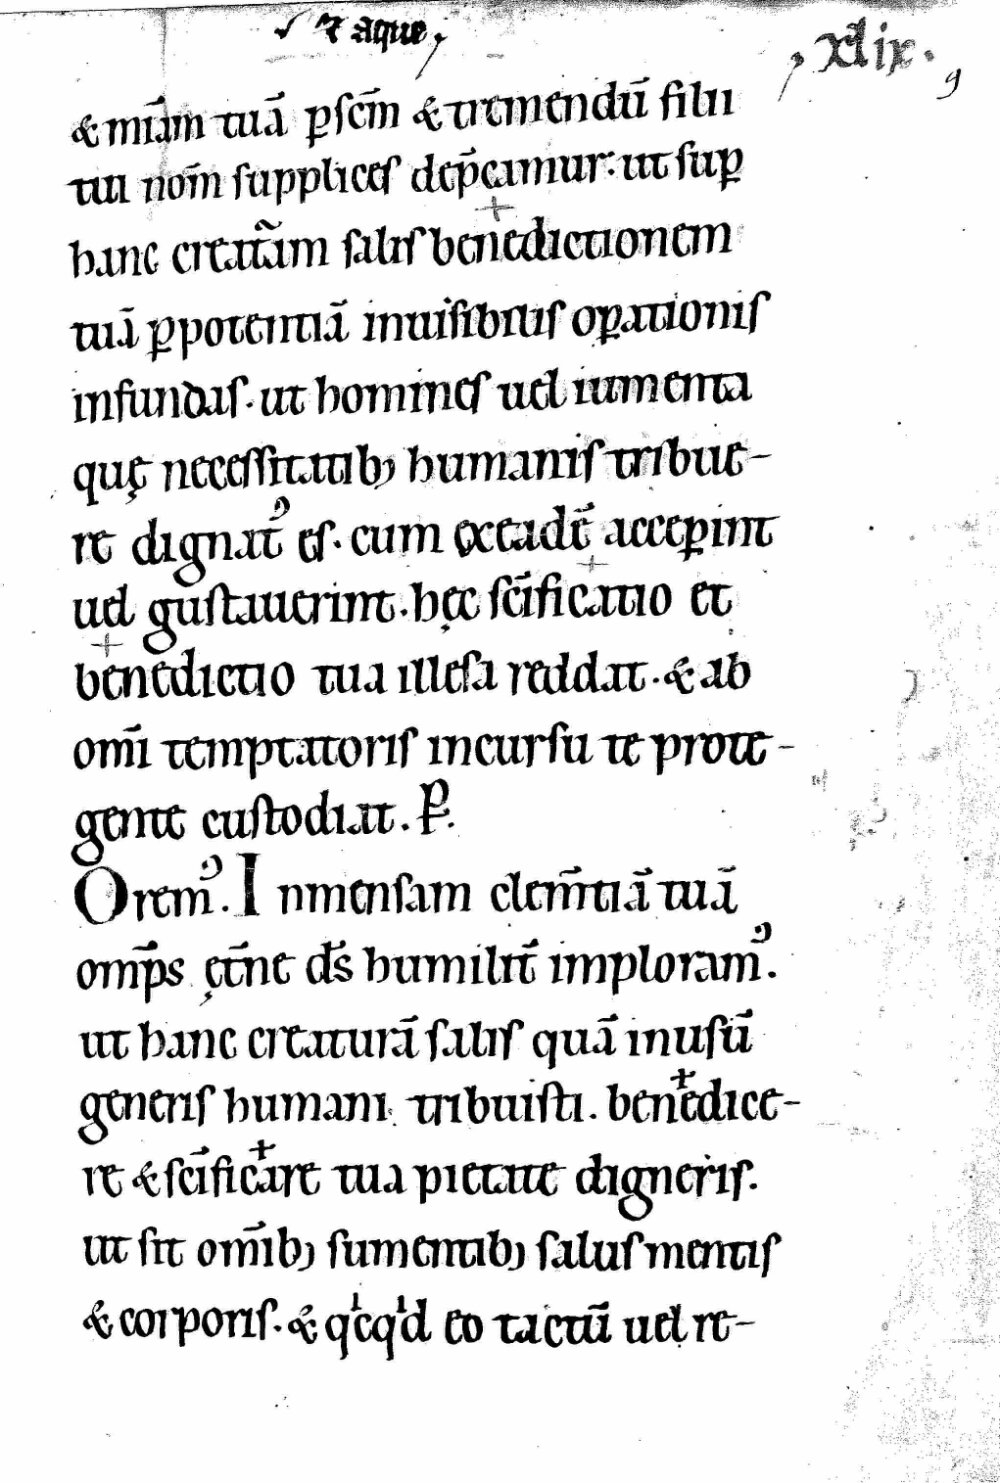 ⁊ aque,
xlix.
9
& miām tuā ꝑscm̄ & tremendū filii
tui nom̄ supplices dep̄camur: ut suꝑ
hanc creatr̃am salis bene+dictionem
tuā ꝑ potentiā inuisibilis oꝑationis
infundas. ut homines uel iumenta
quę necessitatib; humanis tribue-
re dignatꝰ es. cum ex eadē acceꝑint
uel gustauerint. hęc sc̄ifica+tio et
bene+dictio tua illesa reddat. & ab
om̄i temptatoris incursu te prote-
gente custodiat. P̱.
Oremꝰ. Inmensam clem̄tiā tuā
omp̄s ęt̄ne ds̄ humilit̄ imploramꝰ.
ut hanc creaturā salis quā in usū
generis humani tribuisti. bene+dice-
re & sc̄ifica+re tua pietate digneris.
ut sit om̄ib; sumentib; salus mentis
& corporis. & qͥcqͥd eo tactū uel re-